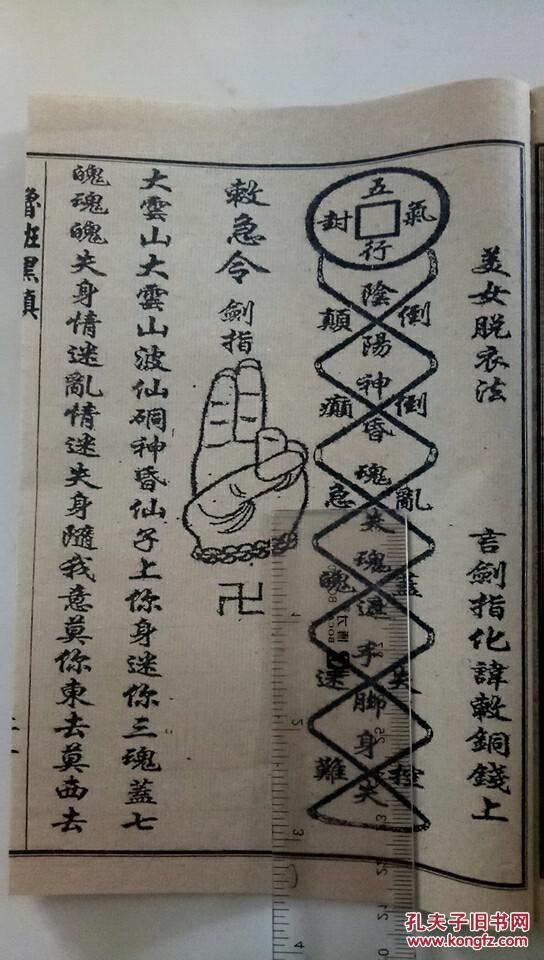 美女脫衣法
言劍指化諱敕銅錢上
五
封 氣
行
陰
顛 倒
陽
神
癲 倒
昏
魂
急 亂
失
魂
魄 蓋
迷
手
迷 失
脚
身
難 控
失
敕急令 劍指
卍
大雲山大雲山波仙硐神昏仙子上你身迷你三魂蓋七
魄魂魄失身情迷亂情迷失身隨我意莫你東去莫西去
魯班黑
孔夫子旧书网
www.kongfz.com